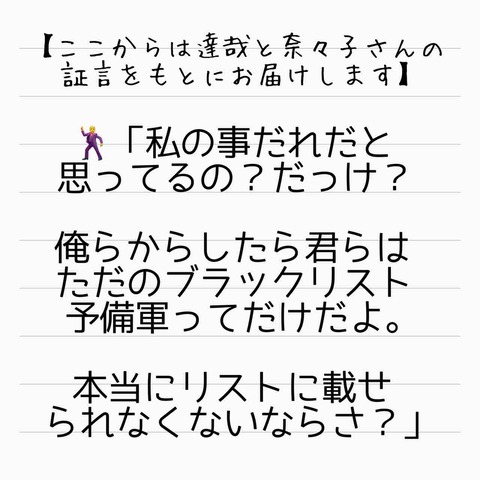 【ここからは達哉と奈々子さんの
証言をもとにお届けします】
🕺「私の事だれだと
思ってるの？だっけ？
俺らからしたら君らは
ただのブラックリスト
予備軍ってだけだよ。
本当にリストに載せ
られなくないならさ？」